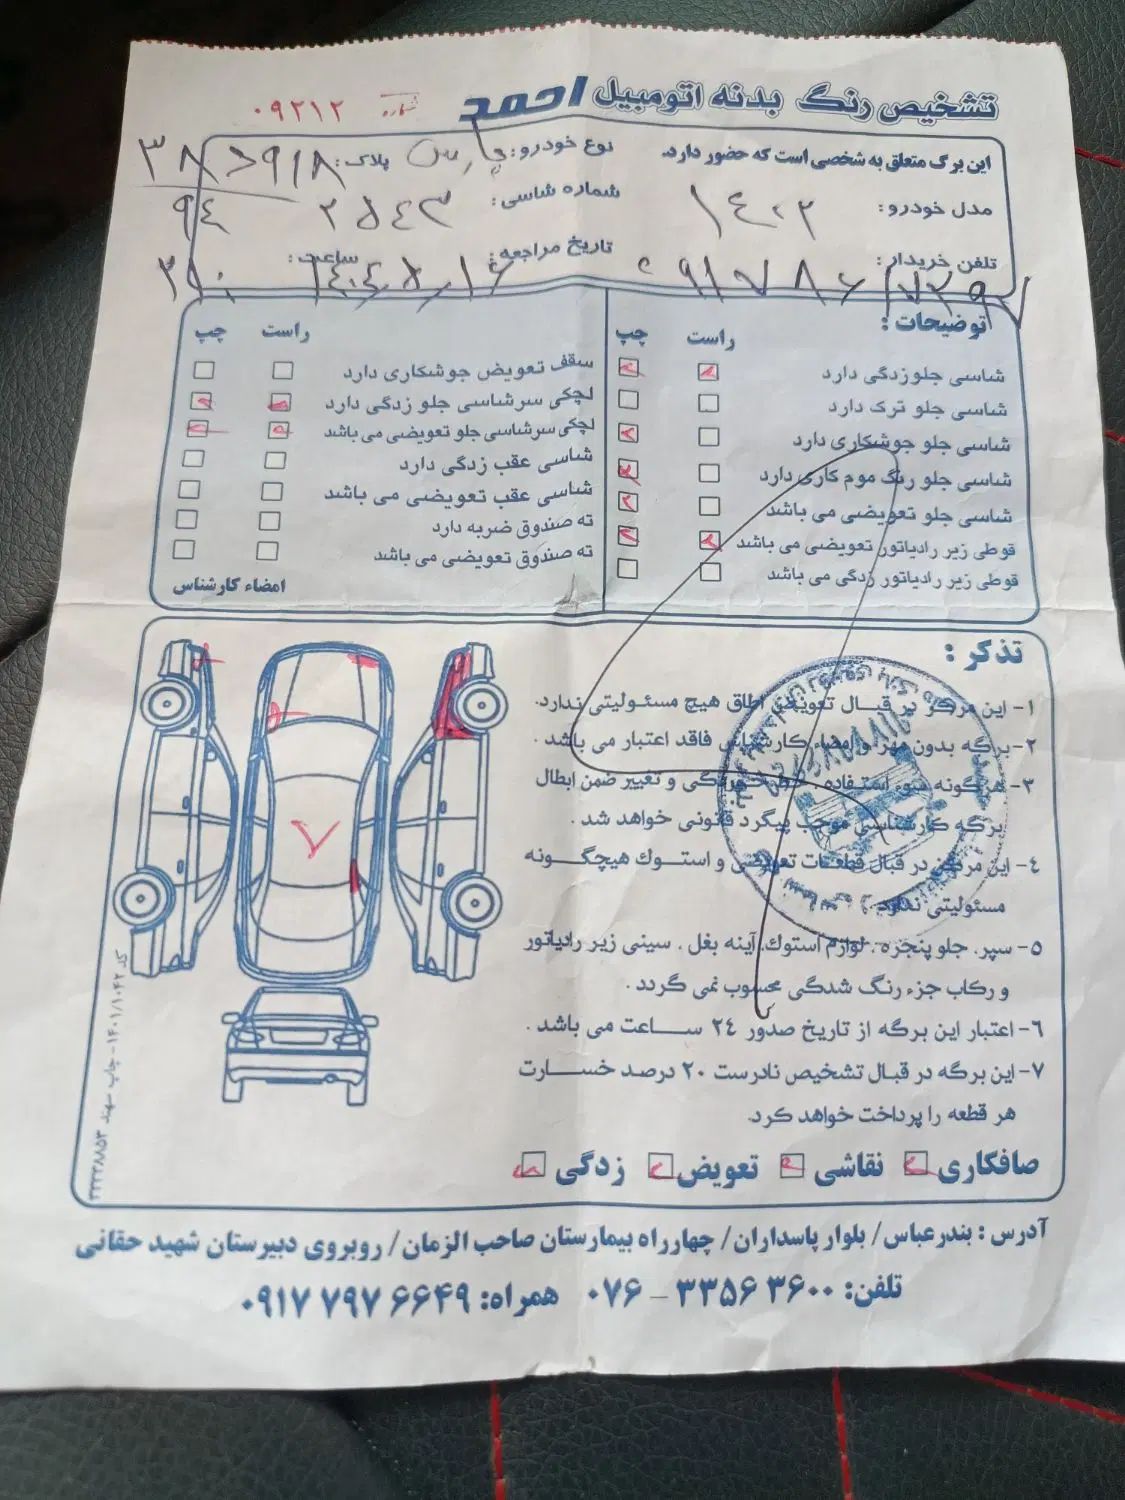 تشخیص رنگ بدنه اتومبیل احمد
شماره ۰۹۲۱۲
این برگ متعلق به شخصی است که حضور دارد.
نوع خودرو: پارس
پلاک:
مدل خودرو: ۱۴۰۲
شماره شاسی: ۲۵۴۳
تلفن خریدار:
تاریخ مراجعه:
ساعت:
توضیحات :
راست چپ
شاسی جلو زدگی دارد
شاسی جلو ترک دارد
شاسی جلو جوشکاری دارد
شاسی جلو رنگ موم کاری دارد
شاسی جلو تعویضی می باشد
قوطی زیر رادیاتور تعویضی می باشد
قوطی زیر رادیاتور زدگی می باشد
راست چپ
سقف تعویض جوشکاری دارد
لچکی سرشاسی جلو زدگی دارد
لچکی سرشاسی جلو تعویضی می باشد
شاسی عقب زدگی دارد
شاسی عقب تعویضی می باشد
ته صندوق ضربه دارد
ته صندوق تعویضی می باشد
امضاء کارشناس
تذکر :
۱- این مرکز در قبال تعویض اطاق هیچ مسئولیتی ندارد.
۲- برگه بدون مهر و امضاء کارشناس فاقد اعتبار می باشد .
۳- هرگونه سوء استفاده ، خط خوردگی و تغییر ضمن ابطال
برگه کارشناسی موجب پیگرد قانونی خواهد شد .
٤- این مرکز در قبال قطعات تعویضی و استوک هیچگونه
مسئولیتی ندارد.
۵- سپر، جلو پنجره، لوازم استوک، آینه بغل ، سینی زیر رادیاتور
و رکاب جزء رنگ شدگی محسوب نمی گردد .
۶- اعتبار این برگه از تاریخ صدور ۲٤ ساعت می باشد .
۷- این برگه در قبال تشخیص نادرست ۲۰ درصد خسارت
هر قطعه را پرداخت خواهد کرد.
صافکاری نقاشی تعویض زدگی
کد ۱۴۰۱/۱۰۴۲ - چاپ سهند ۳۲۲۳۸۸۵۳
آدرس : بندرعباس/ بلوار پاسداران/ چهارراه بیمارستان صاحب الزمان/ روبروی دبیرستان شهید حقانی
تلفن: ۳۶۰۰ ۳۳۵۶ - ۰۷۶ همراه: ۶۶۴۹ ۷۹۷ ۰۹۱۷